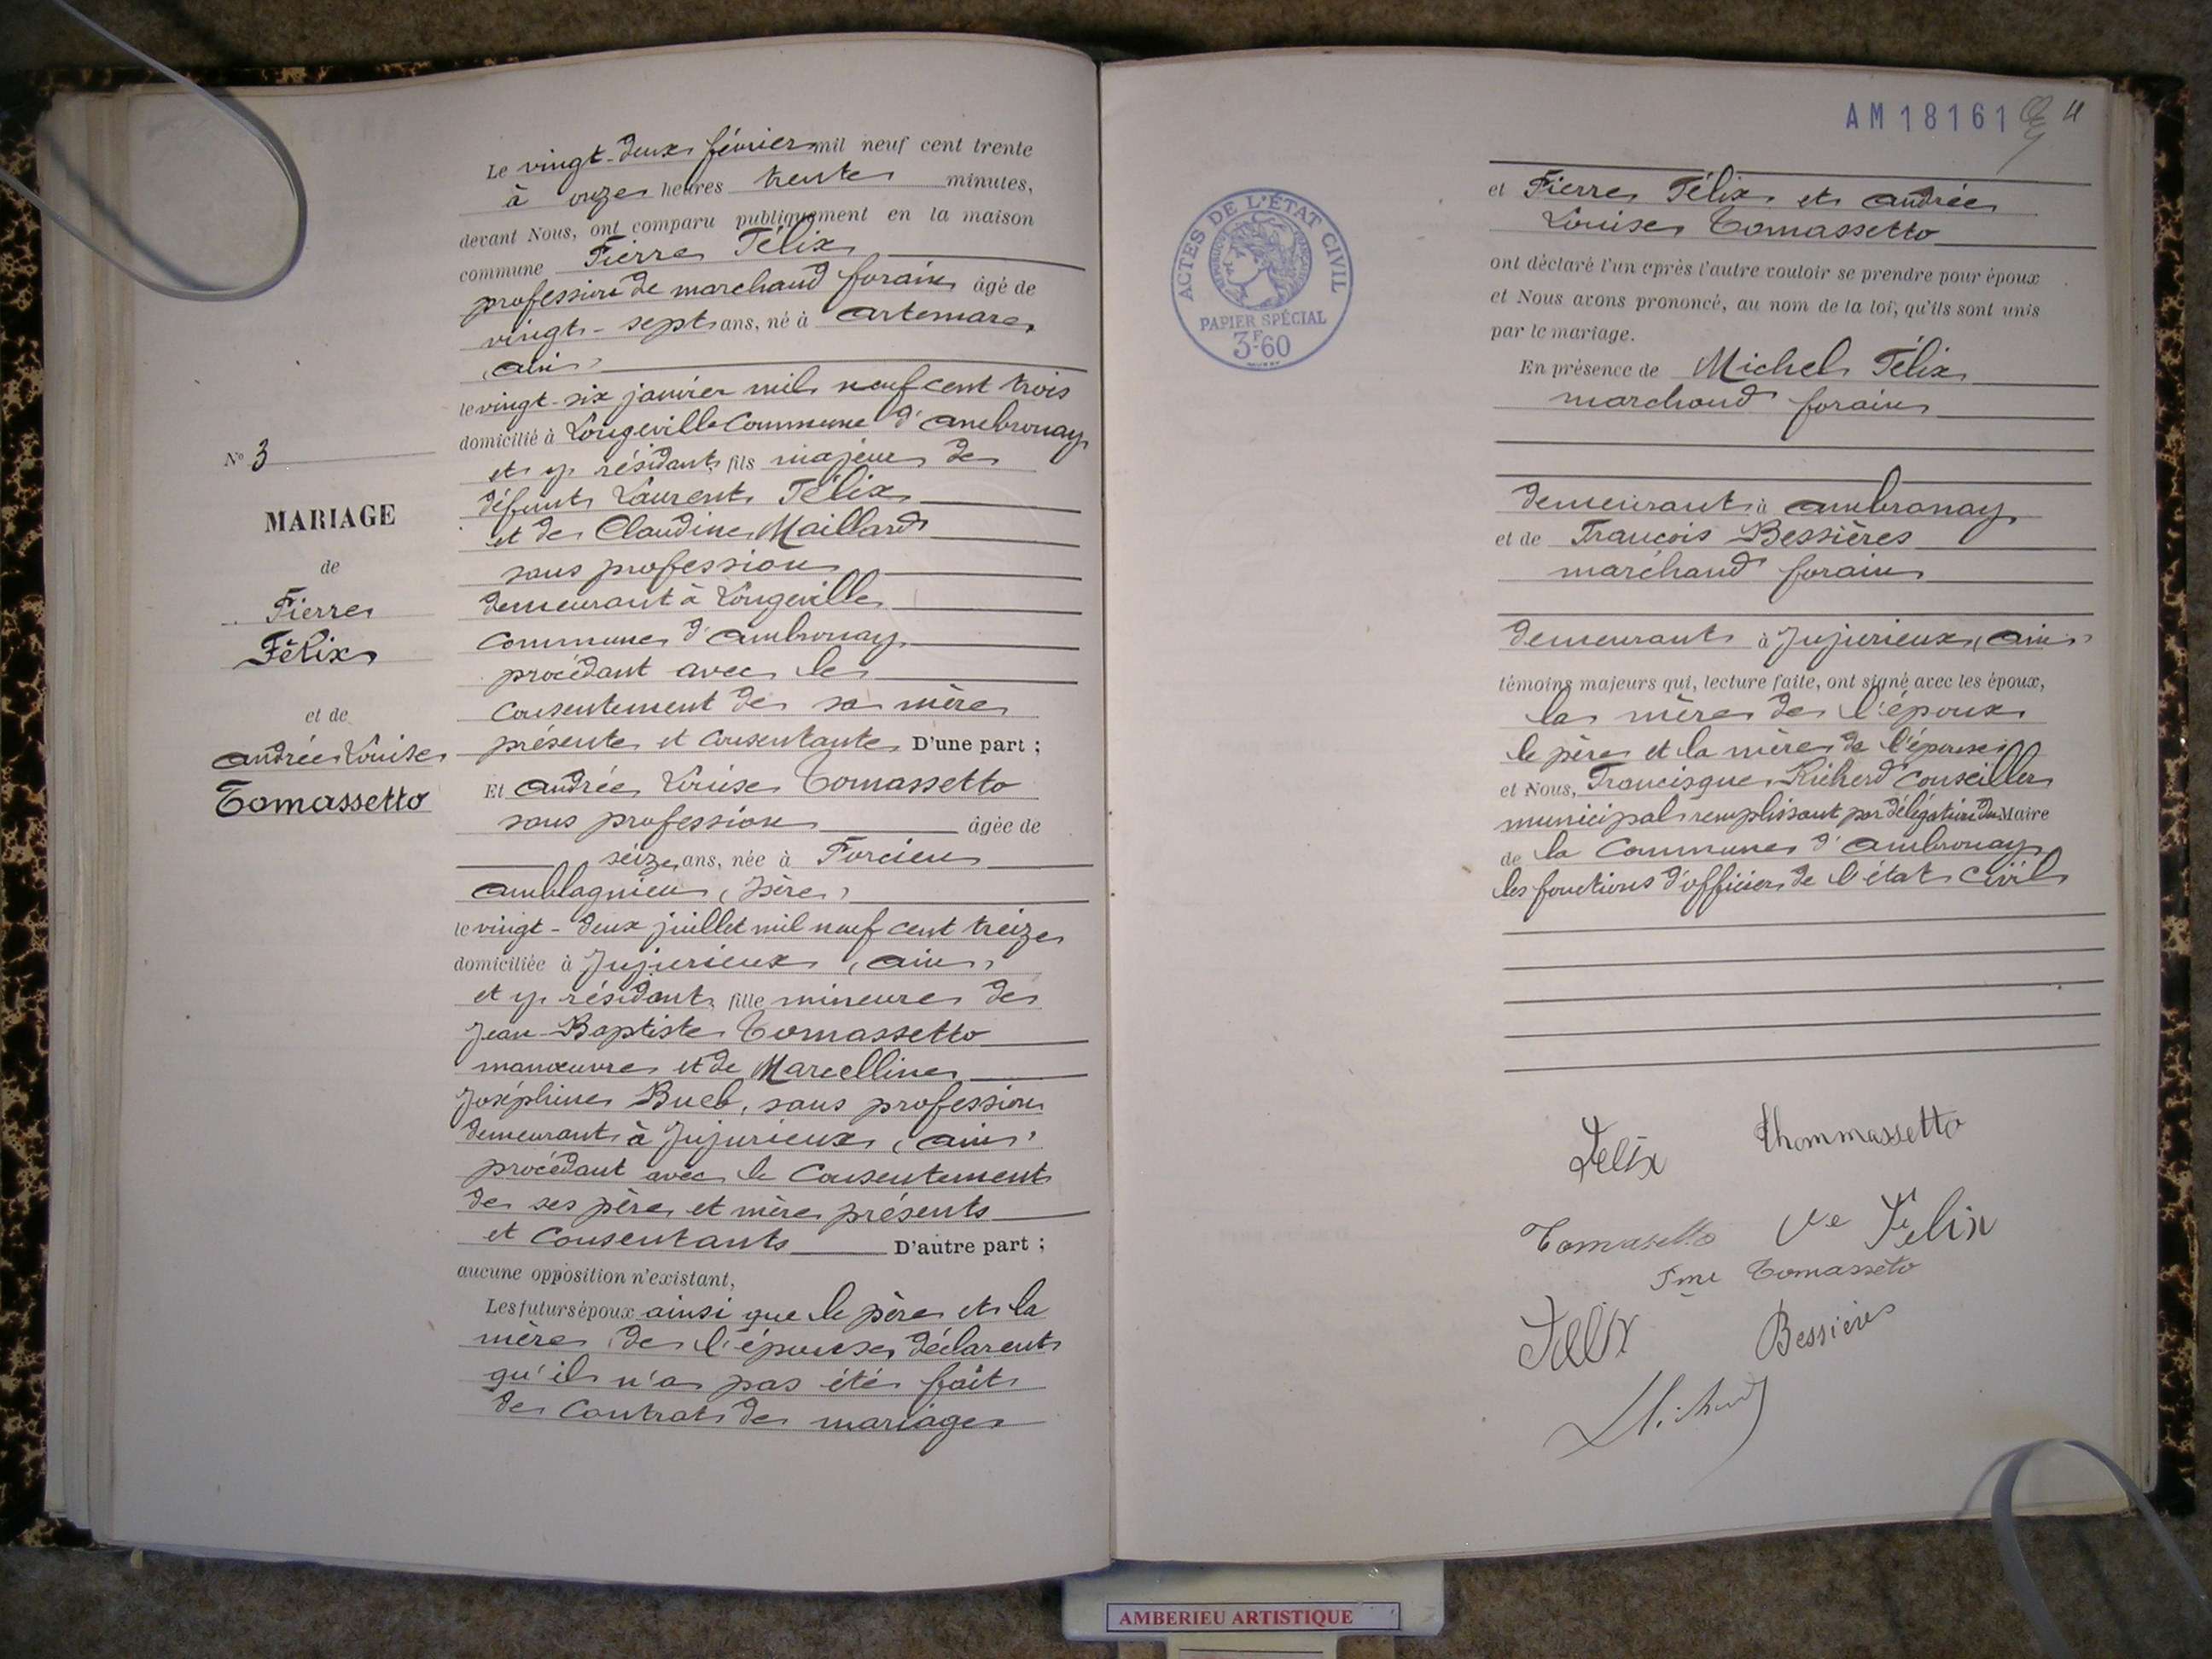 N° 3
MARIAGE
de
Pierre
Félix
et de
Andrée Louise
Tomassetto
Le vingt-deux février mil neuf cent trente
à onze heures trente minutes,
devant Nous, ont comparu publiquement en la maison
commune Pierre Félix
profession de marchand forain âgé de
vingt-sept ans, né à Artemare
(Ain)
le vingt-six janvier mil neuf cent trois
domicilié à Longeville Commune d'Ambronay
et y résidant, fils majeur de
défunt Laurent Félix
et de Claudine Maillard
sans profession
demeurant à Longeville
Commune d'Ambronay
procédant avec le
consentement de sa mère
présente et consentante D'une part ;
Et Andrée Louise Tomassetto
sans profession âgée de
seize ans, née à Porcieu
Amblagnieu (Isère)
le vingt-deux juillet mil neuf cent treize
domiciliée à Jujurieux (Ain)
et y résidant, fille mineure de
Jean-Baptiste Tomassetto
manœuvre et de Marcelline
Joséphine Bueb, sans profession
demeurant à Jujurieux (Ain)
procédant avec le consentement
de ses père et mère présents
et consentants D'autre part ;
aucune opposition n'existant,
Les futurs époux ainsi que le père et la
mère de l'épouse, déclarent
qu'il n'a pas été fait
de contrat de mariage
AM 18161
ACTES DE L'ÉTAT CIVIL
RÉPUBLIQUE FRANÇAISE
PAPIER SPÉCIAL
3F60
et Pierre Félix et Andrée
Louise Tomassetto
ont déclaré l'un après l'autre vouloir se prendre pour époux
et Nous avons prononcé, au nom de la loi, qu'ils sont unis
par le mariage.
En présence de Michel Félix
marchand forain
demeurant à Ambronay
et de François Bessières
marchand forain
demeurant à Jujurieux (Ain)
témoins majeurs qui, lecture faite, ont signé avec les époux,
la mère de l'époux
le père et la mère de l'épouse
et Nous, Francisque Richerd Conseiller
municipal remplissant par délégation du Maire
de la Commune d'Ambronay
les fonctions d'officier de l'état civil
Felix thommassetto
Tomasetto Ve Felix
Fme Tomasseto
Felix Bessières
AMBERIEU ARTISTIQUE